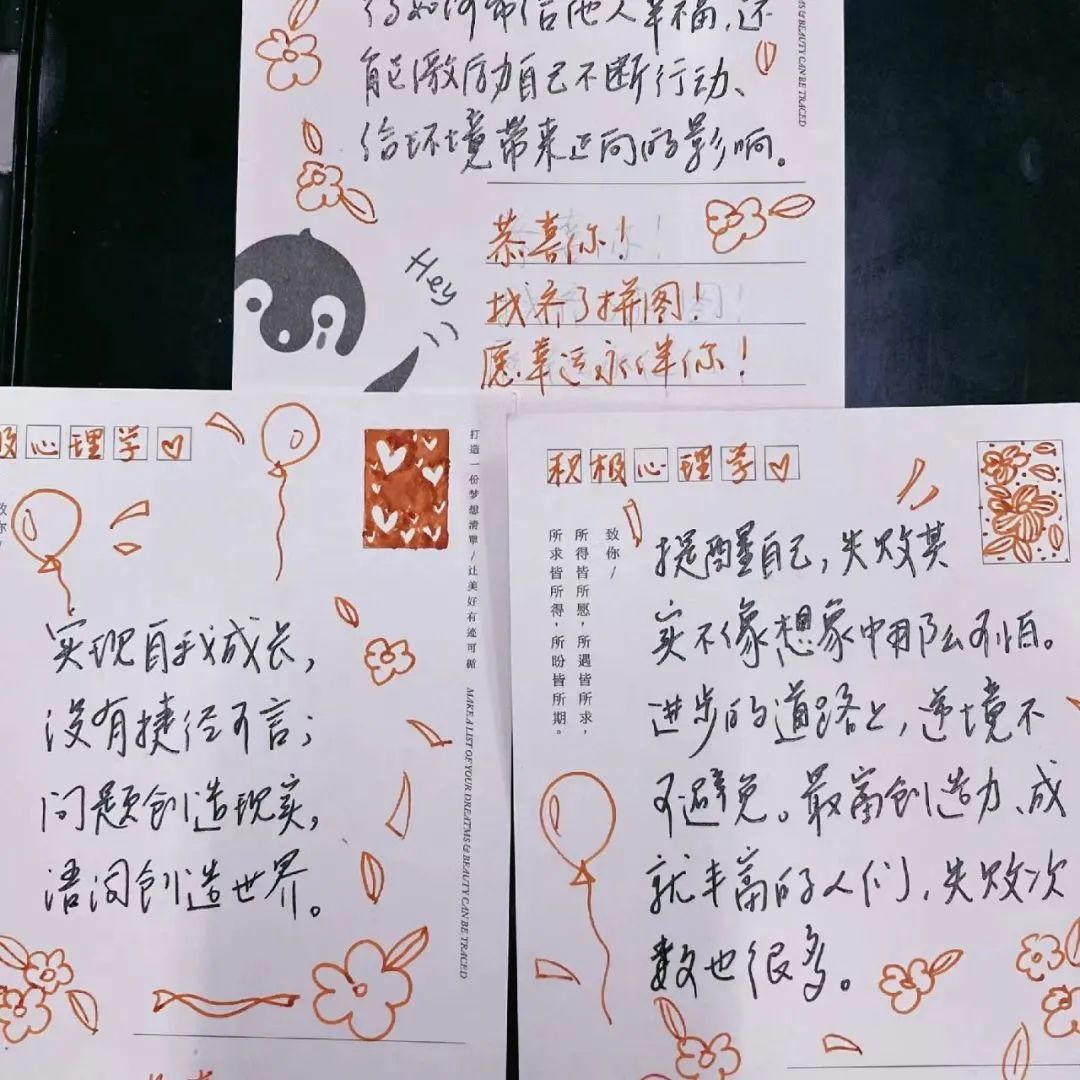 得如何带给他人幸福,还
能激励自己不断行动、
给环境带来正向的影响。
MS & BEAUTY CAN BE TRACED
Hey
恭喜你!
找齐了拼图!
愿幸运永伴你!
极心理学
致你/
打造一份梦想清单/让美好有迹可循
MAKE A LIST OF YOUR DREATMS & BEAUTY CAN BE TRACED
实现自我成长,
没有捷径可言;
问题创造现实,
语词创造世界。
积极心理学
致你/
所得皆所愿,所遇皆所求,
所求皆所得,所盼皆所期。
提醒自己,失败其
实不像想象中那么可怕。
进步的道路上,逆境不
可避免。最富创造力、成
就丰富的人们,失败次
数也很多。